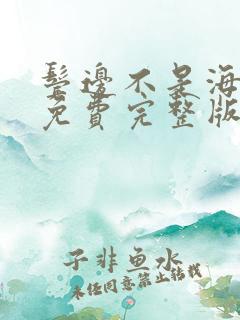 鬓边不是海
免费完整版
子非鱼水
未经同意禁止转载